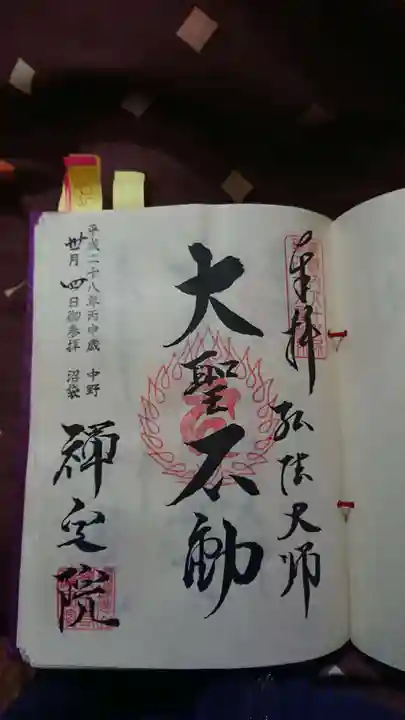 奉拝 弘法大師
大聖不動
平成二十八年丙申歳 中野
月 四日御参拝 沼袋
禅定院